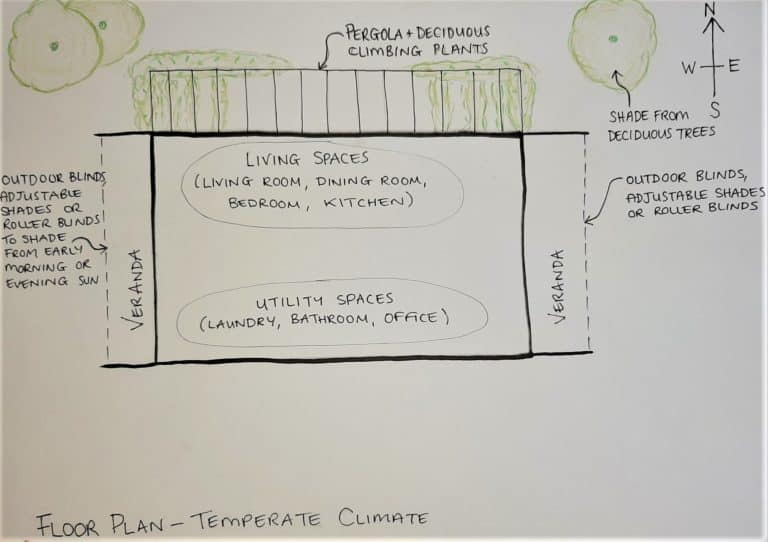 PERGOLA + DECIDUOUS
CLIMBING PLANTS
N
W
E
S
SHADE FROM
DECIDUOUS TREES
LIVING SPACES
(LIVING ROOM, DINING ROOM,
BEDROOM, KITCHEN)
OUTDOOR BLINDS,
ADJUSTABLE
SHADES OR
ROLLER BLINDS
TO SHADE
FROM EARLY
MORNING OR
EVENING SUN
VERANDA
UTILITY SPACES
(LAUNDRY, BATHROOM, OFFICE)
VERANDA
OUTDOOR BLINDS,
ADJUSTABLE SHADES
OR ROLLER BLINDS
FLOOR PLAN - TEMPERATE CLIMATE